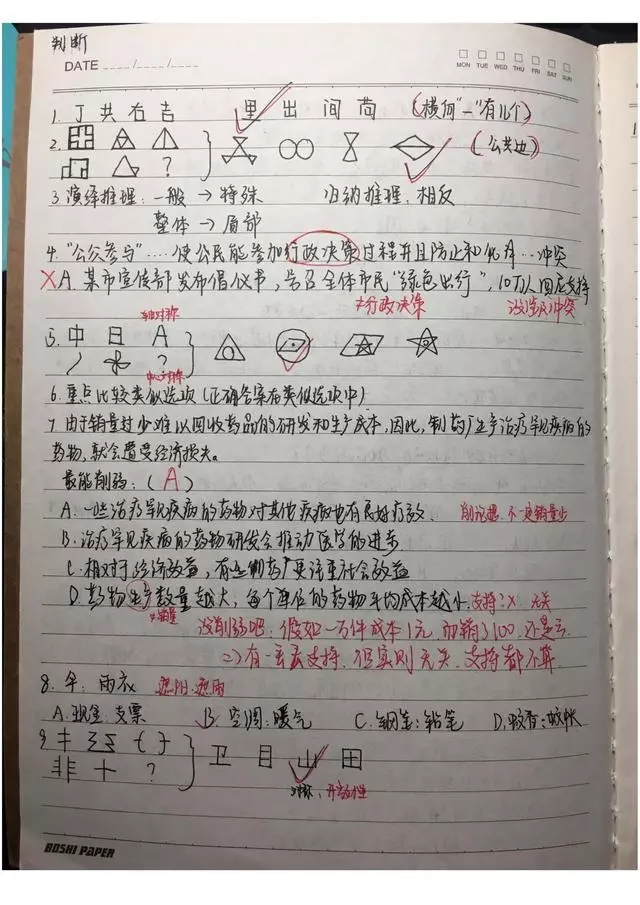 判断
DATE ____/____/____
MON TUE WED THU FRI SAT SUN
1. 丁 共 右 吉 里 出 间 苘 (横向"一"有几个)
2. ? (公共边)
3. 演绎推理:一般 → 特殊 归纳推理:相反
整体 → 局部
4. "公众参与"……使公民能参加行政决策过程并且防止和化解…冲突
X A. 某市宣传部发布倡仪书,号召全体市民"绿色出行",10万人回应支持
≠行政决策 没涉及冲突
轴对称
5. 中 日 A
?
中心对称
6. 重点比较类似选项(正确答案在类似选项中)
7. 由于销量过少难以回收药品的研发和生产成本,因此,制药厂生产治疗罕见疾病的
药物,就会遭受经济损失。
最能削弱:(A)
A. 一些治疗罕见疾病的药物对其他疾病也有良好疗效. 削论题.不一定销量少
B. 治疗罕见疾病的药物研发会推动医学的进步
C. 相对于经济效益,有些制药厂更注重社会效益
D. 药物生产数量越大,每个单位的药物平均成本越小. 支持:X 无关
≠销量
没削弱吧.假如一万件成本1元,而销了100,还是亏
=> 有一丢丢支持,但实则无关.支持都不算
8. 伞:雨衣 遮阳.遮雨
A. 现金:支票 B. 空调:暖气 C. 钢笔:铅笔 D. 蚊香:蚊帐
9. 卫 目 山 田
非 十 ?
对称、开放性
BOSHI PAPER